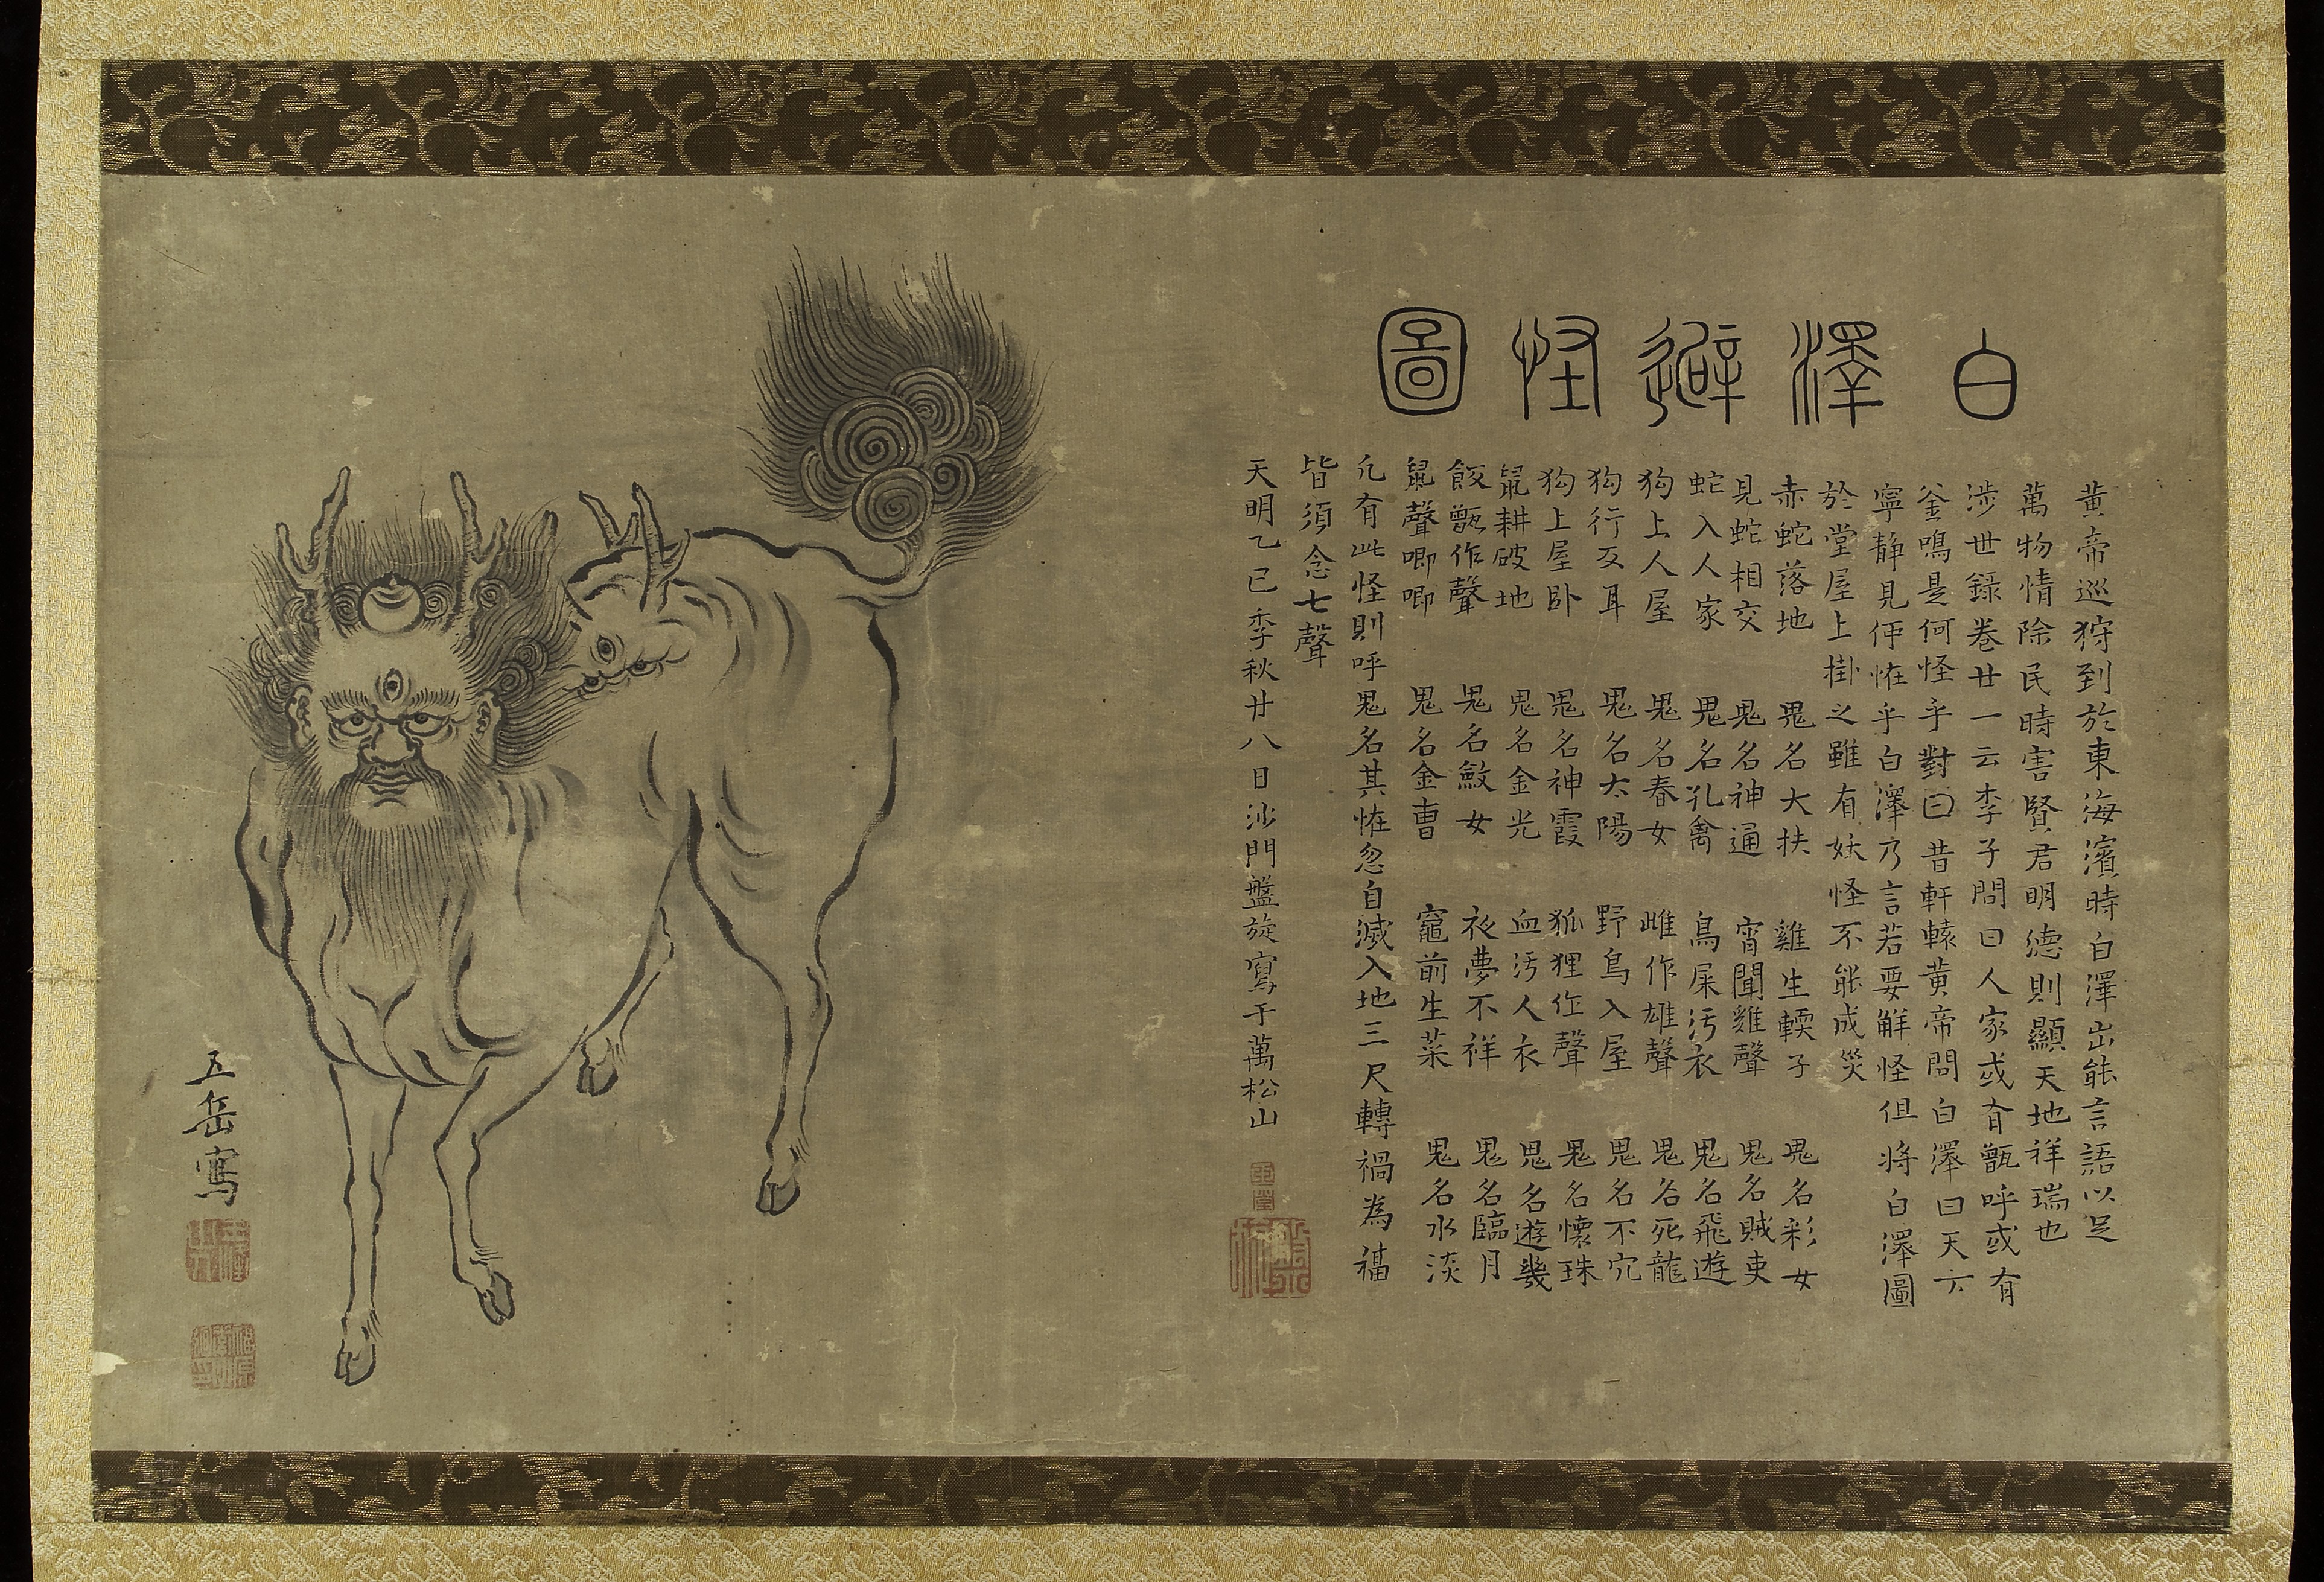 白澤避怪圖
黃帝巡狩到於東海濱時白澤出能言語以足
萬物情除民時害賢君明德則顯天地祥瑞也
涉世錄卷廿一云李子問曰人家或有甑呼或有
釜鳴是何怪乎對曰昔軒轅黃帝問白澤曰天六
寧靜見何恠乎白澤乃言若要解怪但將白澤圖
於堂屋上掛之雖有妖怪不能成災
赤蛇落地 鬼名大扶 雞生軟子 鬼名彩女
見蛇相交 鬼名神通 宵聞雞聲 鬼名賊吏
蛇入人家 鬼名孔禽 鳥屎污衣 鬼名飛遊
狗上人屋 鬼名春女 雌作雄聲 鬼名死龍
狗行反耳 鬼名太陽 野鳥入屋 鬼名不穴
狗上屋卧 鬼名神霞 狐狸作聲 鬼名懷珠
鼠耕破地 鬼名金光 血污人衣 鬼名遊幾
飯甑作聲 鬼名斂女 夜夢不祥 鬼名臨月
鼠聲唧唧 鬼名金曹 竈前生菜 鬼名水淡
凢有此怪則呼鬼名其恠忽自滅入地三尺轉禍為福
皆須念七聲
天明乙巳季秋廿八日沙門盤旋寫于萬松山
五岳寫